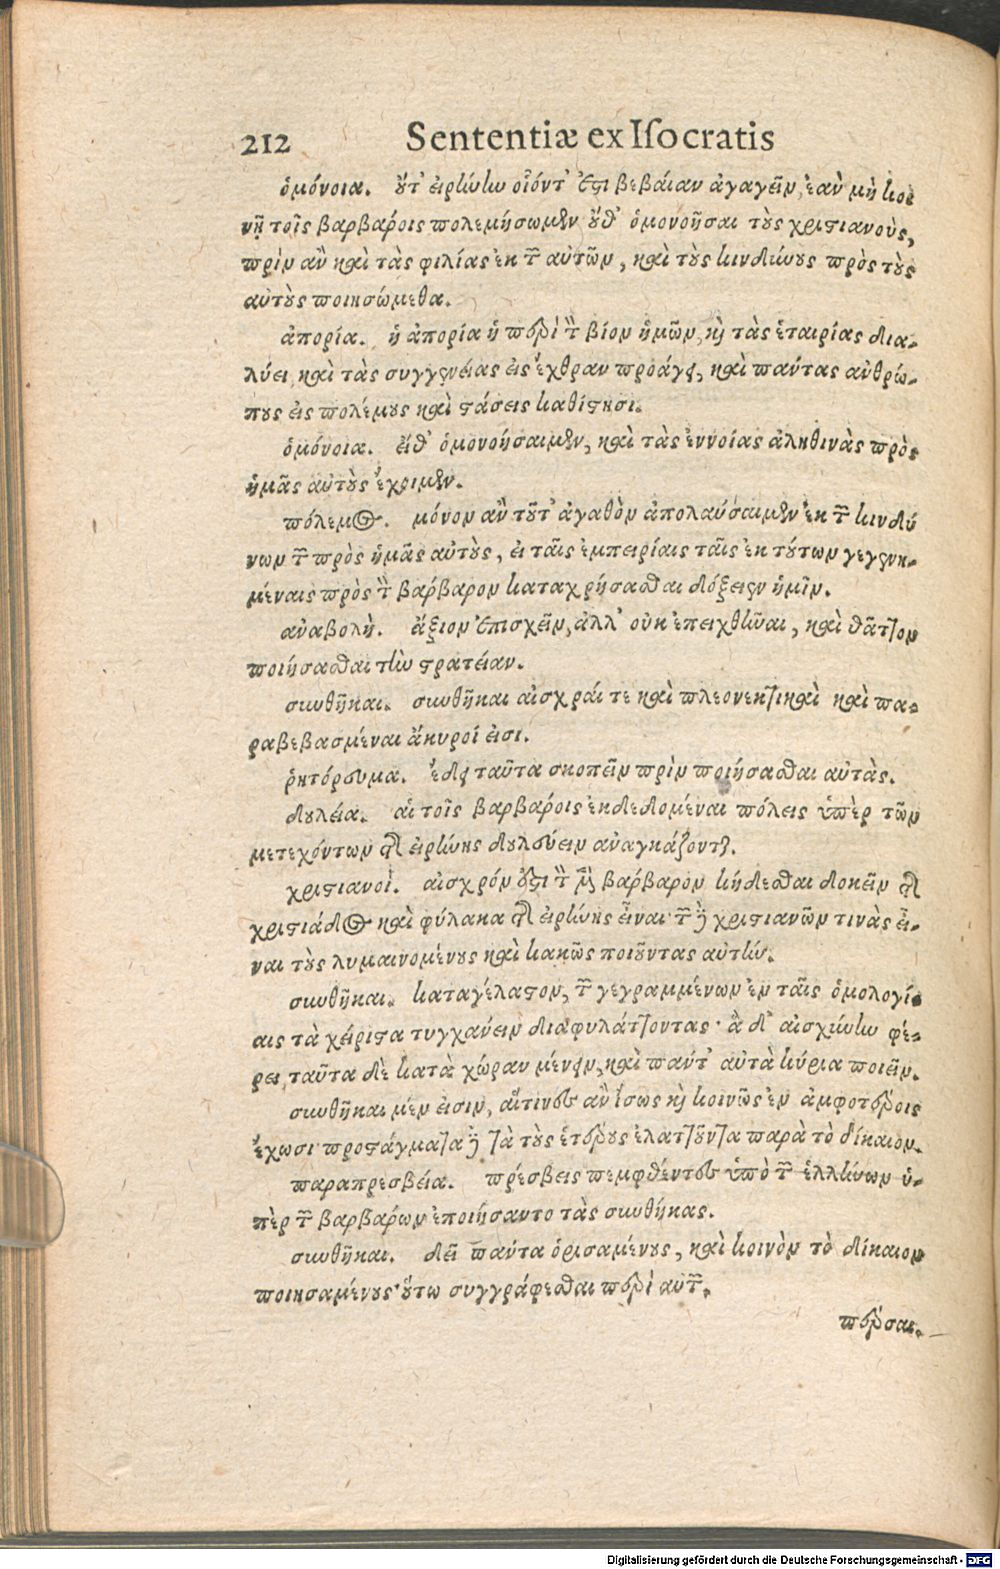 212 Sententiæ ex Iſocratis
ὁμόνοια. οὔτ' εἰρήνην οἷόντ' ἐστι βεβαίαν ἀγαγεῖν, ἐὰν μὴ κοι
νῇ τοῖς βαρβάροις πολεμήσωμεν οὔθ' ὁμονοῆσαι τοὺς χριστιανοὺς,
πρὶν ἂν καὶ τὰς φιλίας ἐκ τῶν αὐτῶν, καὶ τοὺς κινδύνους πρὸς τοὺς
αὐτοὺς ποιησώμεθα.
ἀπορία. ἡ ἀπορία ἡ περὶ τὸν βίον ἡμῶν, καὶ τὰς ἑταιρίας δια-
λύει, καὶ τὰς συγγενείας εἰς ἔχθραν προάγει, καὶ πάντας ἀνθρώ-
πους εἰς πολέμους καὶ στάσεις καθίστησι.
ὁμόνοια. εἴθ' ὁμονοήσαιμεν, καὶ τὰς ἐννοίας ἀληθινὰς πρὸς
ἡμᾶς αὐτοὺς ἔχοιμεν.
πόλεμος. μόνον ἂν τοῦτ' ἀγαθὸν ἀπολαύσαιμεν ἐκ τῶν κινδύ
νων τῶν πρὸς ἡμᾶς αὐτοὺς, εἰ ταῖς ἐμπειρίαις ταῖς ἐκ τούτων γεγενη-
μέναις πρὸς τὸν βάρβαρον καταχρήσασθαι δόξειεν ἡμῖν.
ἀναβολή. ἄξιον ἐπισχεῖν, ἀλλ' οὐκ ἐπειχθῆναι, καὶ θᾶττον
ποιήσασθαι τὴν στρατείαν.
συνθῆκαι. συνθῆκαι αἰσχραί τε καὶ πλεονεκτικαὶ καὶ πα-
ραβεβασμέναι ἄκυροί εἰσι.
ῥητόρευμα. ἔδει ταῦτα σκοπεῖν πρὶν ποιήσασθαι αὐτάς.
δουλεία. αἱ τοῖς βαρβάροις ἐκδεδομέναι πόλεις ὑπὲρ τῶν
μετεχόντων τῆς εἰρήνης δουλεύειν ἀναγκάζονται.
χριστιανοί. αἰσχρόν ἐστι τὸν μὲν βάρβαρον κήδεσθαι δοκεῖν τῆς
χριστιάδος καὶ φύλακα τῆς εἰρήνης εἶναι· τῶν δὲ χριστιανῶν τινὰς εἶ-
ναι τοὺς λυμαινομένους καὶ κακῶς ποιοῦντας αὐτήν.
συνθῆκαι. καταγέλαστον, τῶν γεγραμμένων ἐν ταῖς ὁμολογί-
αις τὰ χείριστα τυγχάνειν διαφυλάττοντας· ἃ δ' αἰσχύνην φέ-
ρει, ταῦτα δὲ κατὰ χώραν μένειν, καὶ πάντ' αὐτὰ κύρια ποιεῖν.
συνθῆκαι μέν εἰσιν, αἵτινες ἂν ἴσως καὶ κοινῶς ἐν ἀμφοτέροις
ἔχωσι· προστάγματα δὲ τὰ τοὺς ἑτέρους ἐλαττοῦντα παρὰ τὸ δίκαιον.
παραπρεσβεία. πρέσβεις πεμφθέντες ὑπὸ τῶν ἑλλήνων ὑ-
πὲρ τῶν βαρβάρων ἐποιήσαντο τὰς συνθήκας.
συνθῆκαι. δεῖ πάντα ὁρισαμένους, καὶ κοινὸν τὸ δίκαιον
ποιησαμένους· οὕτω συγγράφεσθαι περὶ αὐτῶν.
πέρσαι.
Digitalisierung gefördert durch die Deutsche Forschungsgemeinschaft - DFG